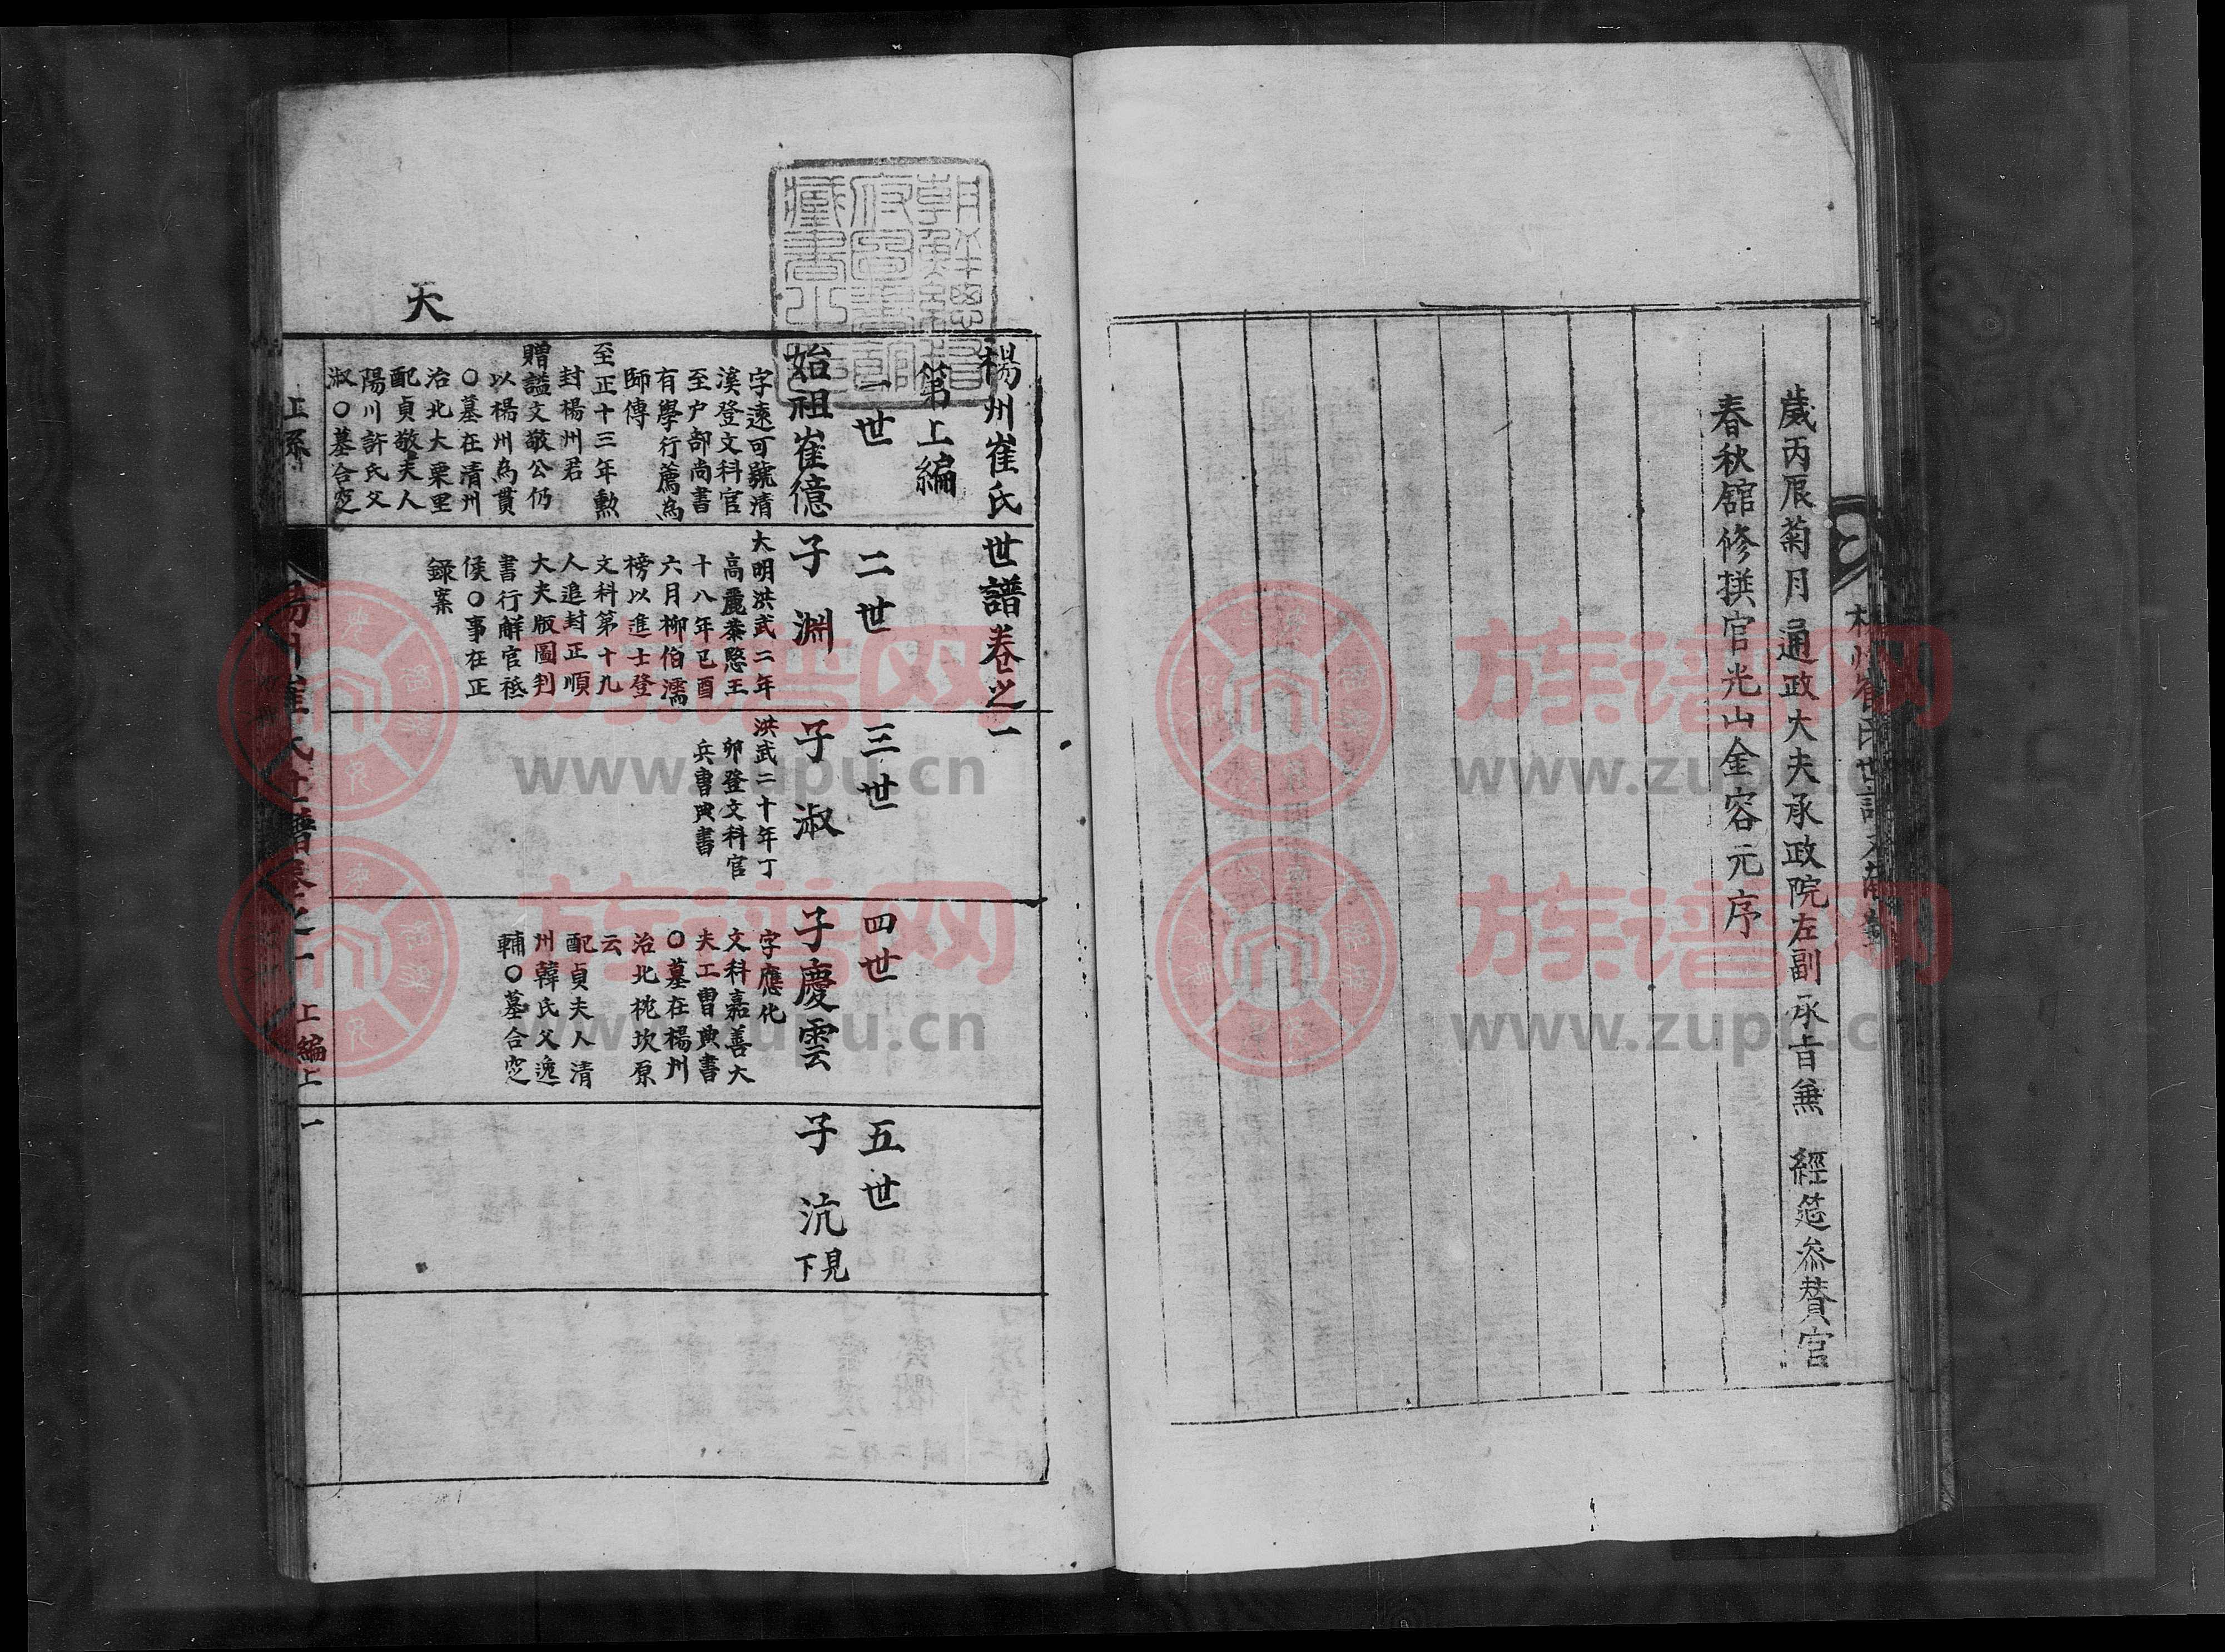 歲丙辰菊月通政大夫承政院左副承旨兼　經筵參贊官
春秋館修撰官光山金容元序
朝鮮總督府圖書館藏書之印
天
楊州崔氏世譜卷之一
第上編
一世
始祖崔億
字遠可號清
溪登文科官
至户部尚書
有學行薦為
師傅
至正十三年勲
封楊州君
贈諡文敬公仍
以楊州為貫
○墓在清州
治北大栗里
配貞敬夫人
陽川許氏父
淑○墓合窆
二世
子淵
大明洪武二年
高麗恭愍王
十八年己酉
六月柳伯濡
榜以進士登
文科第十九
人追封正順
大夫版圖判
書行解官祗
侯○事在正
録案
三世
子淑
洪武二十年丁
卯登文科官
兵曹典書
四世
子慶雲
字應化
文科嘉善大
夫工曹典書
○墓在楊州
治北桃坎原
云
配貞夫人清
州韓氏父逸
輔○墓合窆
五世
子沆
見下
上系
楊州崔氏世譜卷之一　上編上一
族谱网
www.zupu.cn
族谱网
www.zupu.cn
族谱网
www.zupu.cn
族谱网
www.zupu.cn